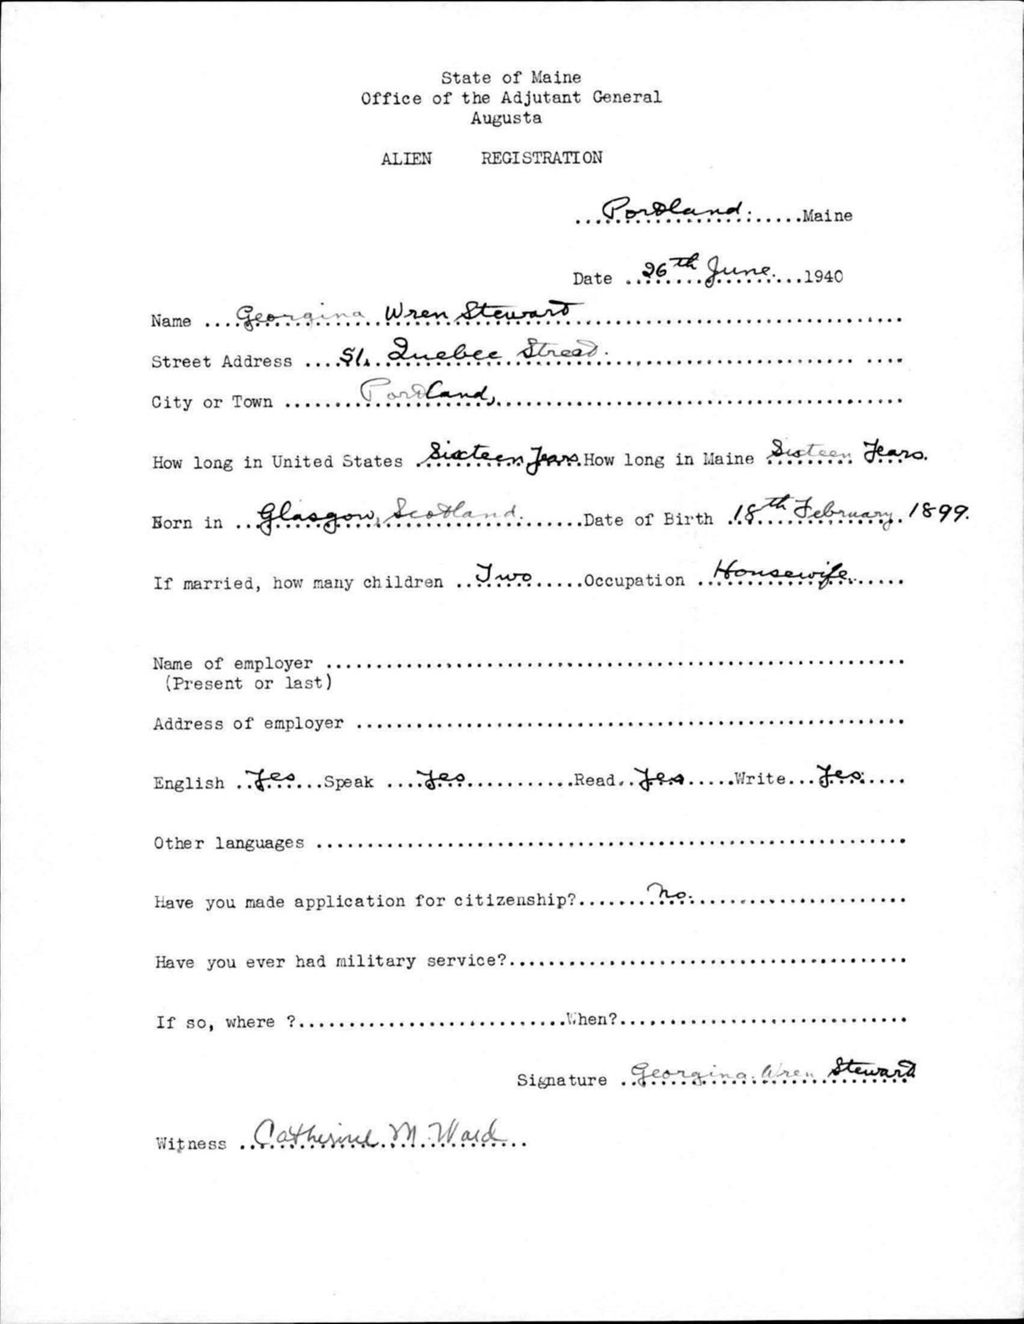 State of Maine
Office of the Adjutant General
Augusta
ALIEN REGISTRATION
...Portland......Maine
Date ..26th June....1940
Name ....Georgina Wren Stewart..............................
Street Address ....51, Quebec Street..............................
City or Town ........Portland,..............................
How long in United States .Sixteen Years.How long in Maine Sixteen Years.
Born in ..Glasgow, Scotland.......Date of Birth .18th February. 1899.
If married, how many children ..Two.....Occupation ..Housewife......
Name of employer ..............................
(Present or last)
Address of employer ..............................
English ..Yes...Speak ....Yes...........Read..Yes.....Write...Yes.....
Other languages ..............................
Have you made application for citizenship?.......No.......................
Have you ever had military service?..............................
If so, where ?...........................When?..............................
Signature ..Georgina. Wren Stewart
Witness ..Catherine M. Ward...